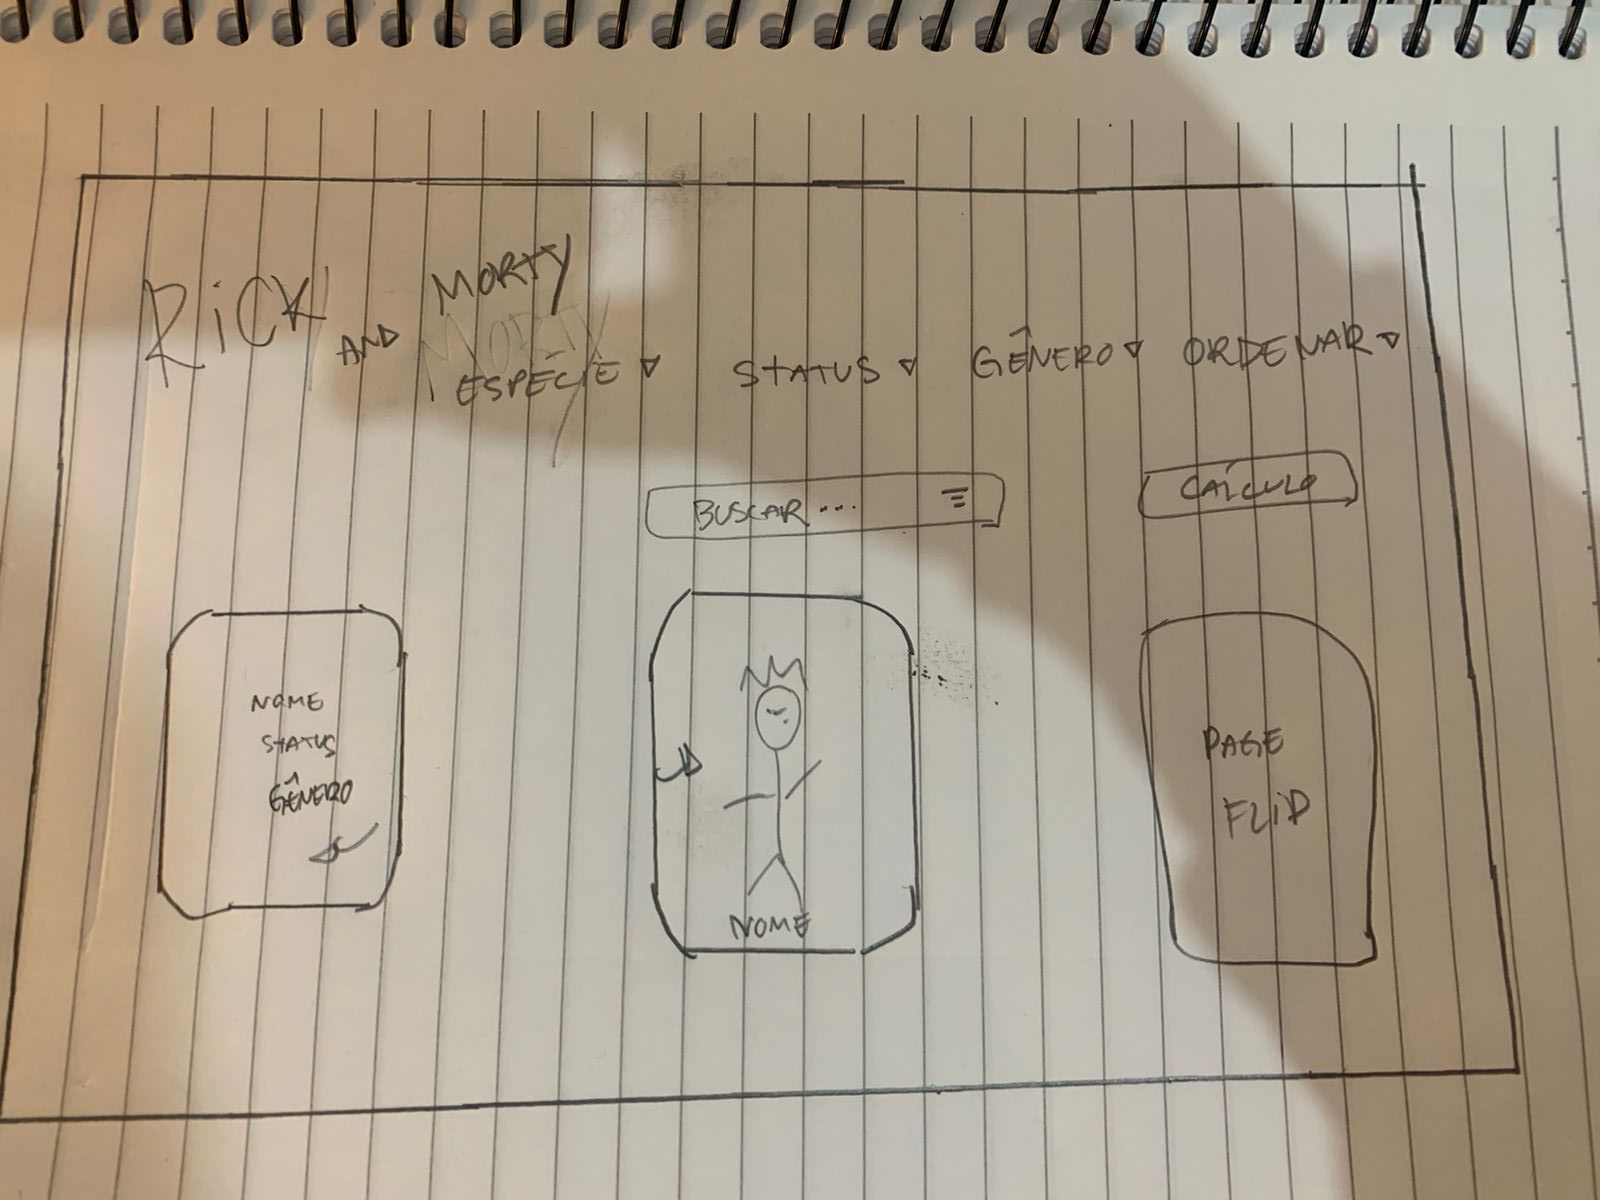 RiCK AND MORTY
MORTY
ESPÉCIE STATUS GÊNERO ORDENAR
BUSCAR ...
CÁLCULO
NOME
STATUS
GÊNERO
NOME
PAGE
FLIP